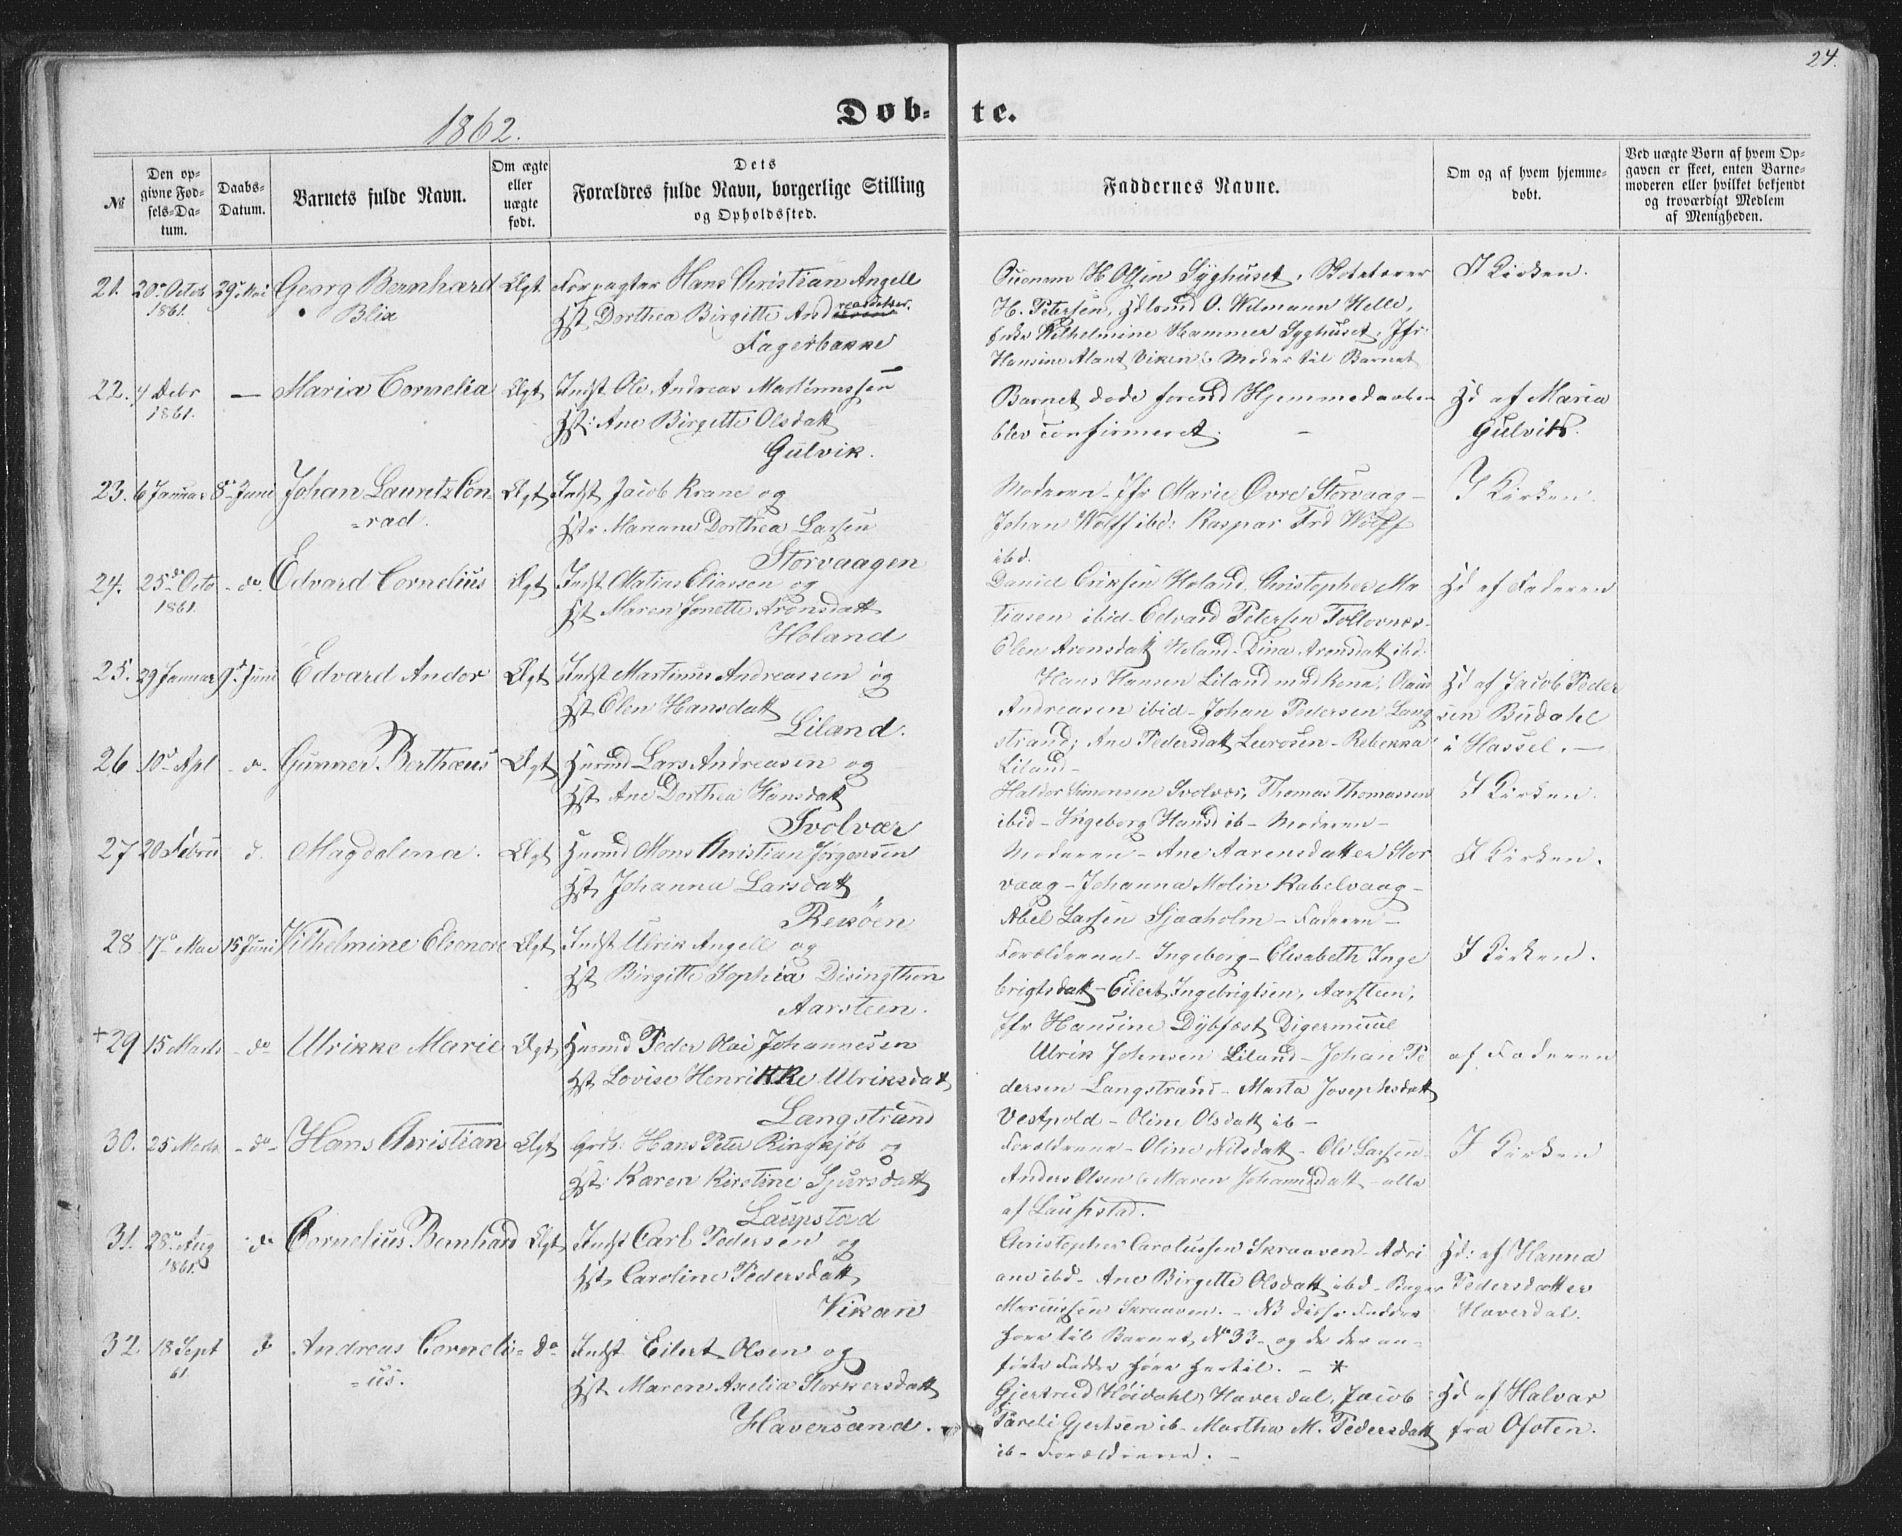 24.
1862.
Døb- te.
№
Den opgivne Fødsels-Datum.
Daabs-Datum.
Barnets fulde Navn.
Om ægte eller uægte født.
Dets Forældres fulde Navn, borgerlige Stilling og Opholdssted.
Faddernes Navne.
Om og af hvem hjemmedøbt.
Ved uægte Børn af hvem Opgaven er skeet, enten Barnemoderen eller hvilket bekjendt og troværdigt Medlem af Menigheden.
21. 20de Octob 29de Mai Georg Bernhard Ægt. Forpagter Hans Christian Angell
1861. Blix Hst Dorthea Birgitte
Fagerbakke
H. Olsen Syghuset,
H. Petersen, O. Wilmann Helle,
Wilhelmine Hammer Syghuset, Jfr:
Hansine Viken & Moder til Barnet
I Kirken.
22. 4 Debr — Maria Cornelia Ægt Indst Ole Andreas
1861. Hst: Ane Birgitte Olsdatt
Gulvik.
Barnet døde førend Hjemmedaaben
blev confirmeret. —
Hd af Maria
Gulvik.
23. 6 Januar 8de Juni Johan Lauritz Con Ægt Indst Jacob Krane og
=rad. Hstr Mariane Dorthea Larsen
Storvaagen
Moderen - Jfr Marie Øvre Storvaag -
Johan Wolff ibd: Kaspar Frd Wolff
ibd.
I Kirken.
24. 25de Octo - do. Edvard Cornelius Ægt Indst Matias Eliassen og
1861. Hst Maren Jonette Aronsdatt
Holand
Daniel Eriksen Holand, Christopher Ma
tiasen ibid - Edvard Petersen
Elen Aronsdatt Holand - Dina Aronsdatt ibd.
Hd af Faderen
25. 29 Januar 9de Juni Edvard Andor Ægt Indst Martinus Andreassen og
Hst Elen Hansdatt
Liland.
Hans Hansen Liland med Kone, Olaus
Andreasen ibid - Johan Pedersen Lang
strand; Ane Pedersdatt Leirosen - Rebekka
Liland -
Hd af Jacob Peder
sen Budahl
i Hassel. —
26 10de Apl - do - Gunner Berthæus Ægt Husmd Lars Andreasen og
Hst Ane Dorthea Hansdatt
Svolvær
Haldor Simonsen Svolvær, Thomas Thomassen
ibid - Ingeborg Hansd ib - Moderen -
I Kirken.
27 20 Febru d. Magdalena. Ægt Husmd Mons Christian Jørgensen
Hst Johanna Larsdatt
Reköen
Moderen - Ane Aarensdatter Stor
vaag - Johanna Molin Kabelvaag -
Abel Larsen Sjaaholm - Faderen -
I Kirken.
28 17de Mai 15 Juni Vilhelmine Eleonore Ægt Indst Ulrik Angell og
Hst Birgitte Sophia Disingthon
Aarsteen.
Forældrene - Ingeborg - Elisabeth Inge
brigtsdatt - Eilert Ingebrigtsen, Aarsteen,
Jfr Hansine Dybfest Digermuul
I Kirken.
+29 15 Marts - do Ulrikke Marie Ægt Husmd Peder Olai Johannesen
Hst Lovise Henrikke Ulriksdat
Langstrand
Ulrik Johnsen Liland - Johan Pe
dersen Langstrand - Marta Josephsdatt
Vestpold - Oline Olsdatt ib -
af Faderen
30. 25 Marts - do - Hans Christian Ægt Grdb: Hans Peter Ringkjøb og
Hst: Karen Kirstine Sjursdatt
Laupstad
Forældrene - Oline Nilsdatt - Ole Larsen -
Anders Olsen & Maren Johannesdatt - alle
af Laupstad.
I Kirken
31. 28de Aug do Cornelius Bernhard Ægt Indst Carl Pedersen og
1861 Hst Caroline Pedersdatt
Vikan
Christopher Carolussen Skraaven - Adri
ane ibd - Ane Birgitte Olsdatt ibd -
Skraaven. - NB disse Faddere
høre til Barnet No 33 - og de der an-
førte Faddere høre hertil. - *
Hd: af Hanna
Pedersdatter
Haverdal.
32. 18 Sept do Andreas Corneli= do Indst Eilert Olsen og
61 =us. Hst Maren Amelia Storkersdatt
Haversand.
Gjertrud Høidahl, Haverdal, Jacob
Pareli Gjertsen ib - Martha M. Pedersdatt
ib - Forældrene. -
Hd af Halvar
fra Ofoten.